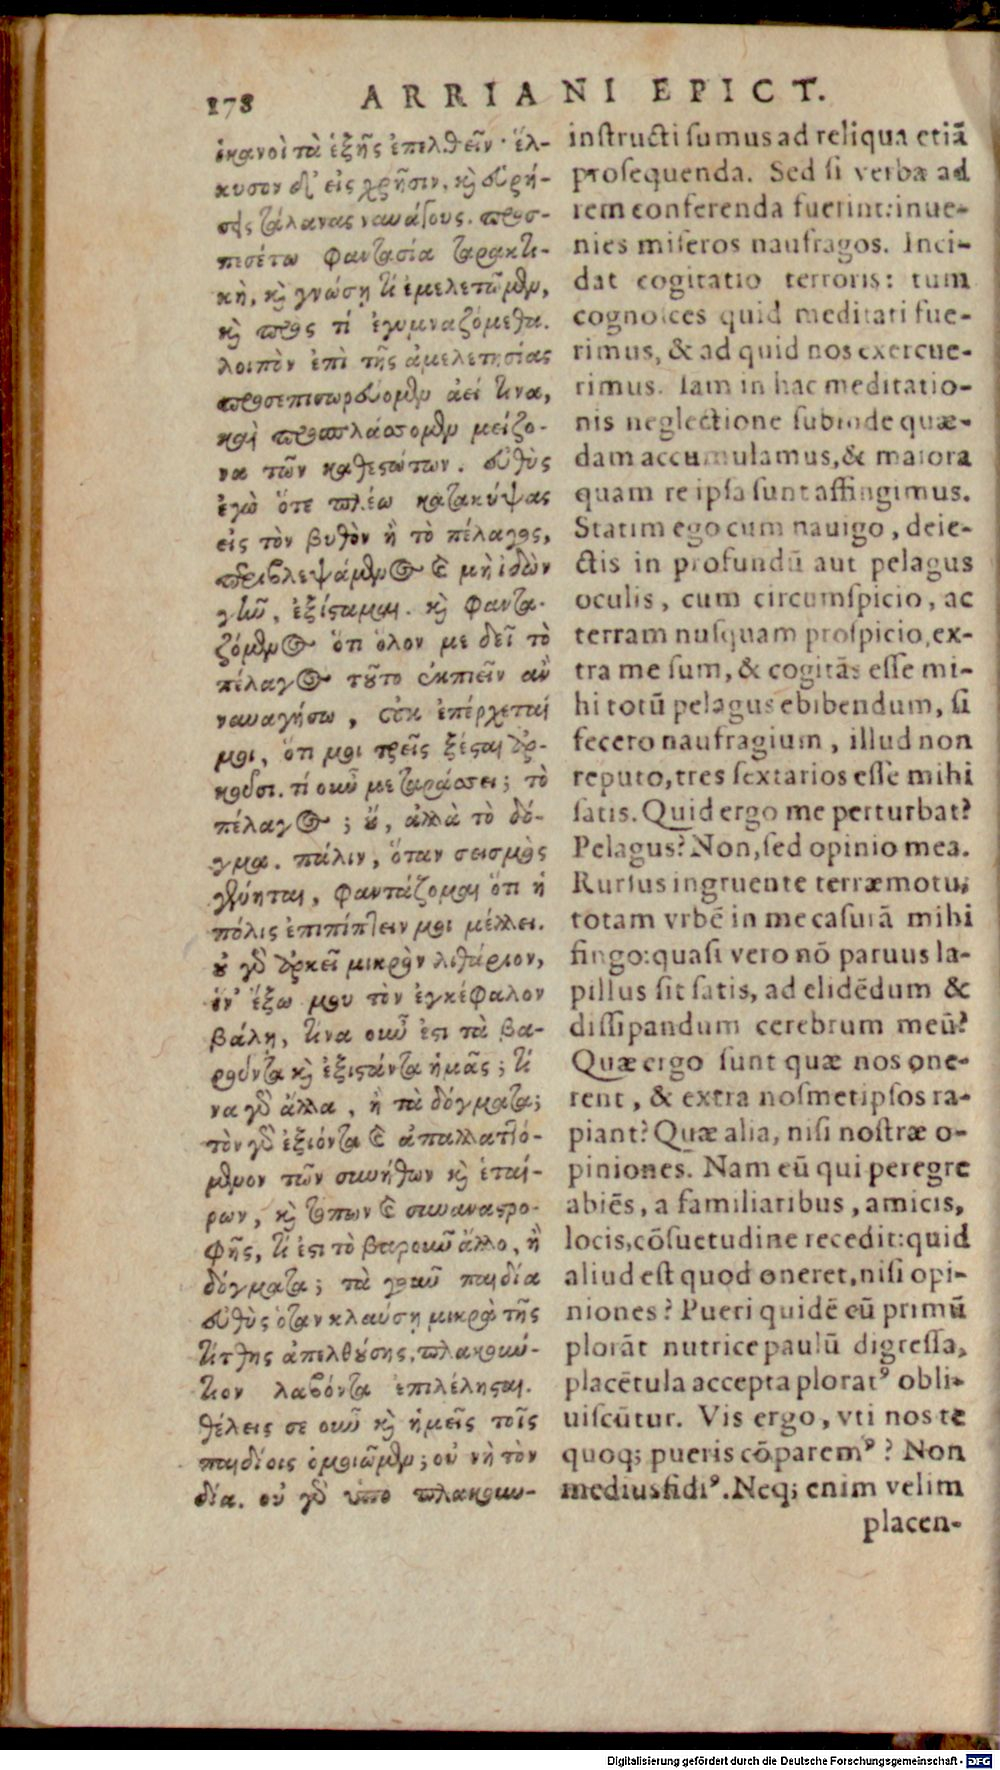 178 ARRIANI EPICT.
ἱκανοὶ τὰ ἑξῆς ἐπελθεῖν· ἕλ-
κυσον δ' εἰς χρῆσιν, καὶ εὑρή-
σεις τάλανας ναυάγους. προσ-
πισέτω φαντασία ταρακτι-
κὴ, καὶ γνώσῃ τί ἐμελετῶμεν,
καὶ πρὸς τί ἐγυμναζόμεθα.
λοιπὸν ἐπὶ τῆς ἀμελετησίας
προσεπισωρεύομεν ἀεί τινα,
καὶ προσπλάσσομεν μείζο-
να τῶν καθεστώτων. εὐθὺς
ἐγὼ ὅτε πλέω κατακύψας
εἰς τὸν βυθὸν ἢ τὸ πέλαγος,
περιβλεψάμενος καὶ μὴ ἰδὼν
γῆν, ἐξίσταμαι. καὶ φαντα-
ζόμενος ὅτι ὅλον με δεῖ τὸ
πέλαγος τοῦτο ἐκπιεῖν ἂν
ναυαγήσω, οὐκ ἐπέρχεταί
μοι, ὅτι μοι τρεῖς ξέσται ἀρ-
κοῦσι. τί οὖν με ταράσσει; τὸ
πέλαγος; οὔ, ἀλλὰ τὸ δό-
γμα. πάλιν, ὅταν σεισμὸς
γένηται, φαντάζομαι ὅτι ἡ
πόλις ἐπιπίπτειν μοι μέλλει.
οὐ γὰρ ἀρκεῖ μικρὸν λιθάριον,
ἵν' ἔξω μου τὸν ἐγκέφαλον
βάλῃ, τίνα οὖν ἐστι τὰ βα-
ροῦντα καὶ ἐξιστάντα ἡμᾶς; τί
να γὰρ ἄλλα, ἢ τὰ δόγματα;
τὸν γὰρ ἐξιόντα καὶ ἀπαλλαττό-
μενον τῶν συνήθων καὶ ἑταί-
ρων, καὶ τόπων καὶ συναναστρο-
φῆς, τί ἐστι τὸ βαροῦν ἄλλο, ἢ
δόγματα; τὰ γοῦν παιδία
εὐθὺς ὅταν κλαύσῃ μικρὰ τῆς
τίτθης ἀπελθούσης, πλακούν-
τιον λαβόντα ἐπιλέλησται.
θέλεις σε οὖν καὶ ἡμεῖς τοῖς
παιδίοις ὁμοιῶμεν; οὐ νὴ τὸν
δία. οὐ γὰρ ὑπὸ πλακουν-
instructi sumus ad reliqua etiā
prosequenda. Sed si verba ad
rem conferenda fuerint: inue-
nies miseros naufragos. Inci-
dat cogitatio terroris: tum
cognosces quid meditati fue-
rimus, & ad quid nos exercue-
rimus. Iam in hac meditatio-
nis neglectione subinde quæ-
dam accumulamus, & maiora
quam re ipsa sunt affingimus.
Statim ego cum nauigo, deie-
ctis in profundū aut pelagus
oculis, cum circumspicio, ac
terram nusquam prospicio, ex-
tra me sum, & cogitās esse mi-
hi totū pelagus ebibendum, si
fecero naufragium, illud non
reputo, tres sextarios esse mihi
satis. Quid ergo me perturbat?
Pelagus? Non, sed opinio mea.
Rursus ingruente terræmotu,
totam vrbē in me casurā mihi
fingo: quasi vero nō paruus la-
pillus sit satis, ad elidēdum &
dissipandum cerebrum meū?
Quæ ergo sunt quæ nos one-
rent, & extra nosmetipsos ra-
piant? Quæ alia, nisi nostræ o-
piniones. Nam eū qui peregre
abiēs, a familiaribus, amicis,
locis, cōsuetudine recedit: quid
aliud est quod oneret, nisi opi-
niones? Pueri quidē eū primū
plorāt nutrice paulū digressa,
placētula accepta ploratꝰ obli-
uiscūtur. Vis ergo, vti nos te
quoq; pueris cōparemꝰ? Non
mediusfidiꝰ. Neq; enim velim
placen-
Digitalisierung gefördert durch die Deutsche Forschungsgemeinschaft - DFG